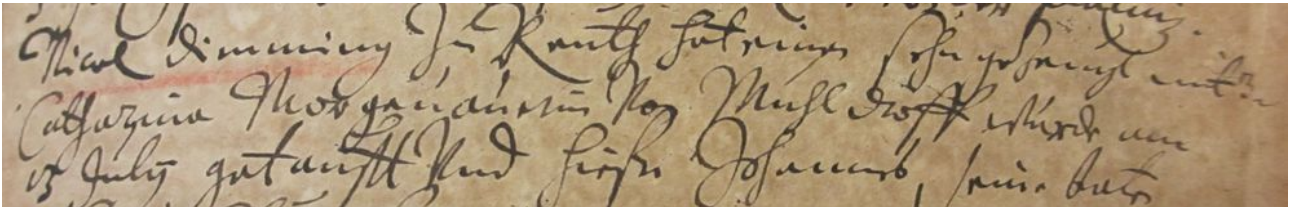 Nicol Dimming Zu Reuth hat einen sohn gezeugt mit
Catharina Morgenäuerin Von Muhldroff wurde am
15 July getaufft Vnd hiesse Johannes, seine